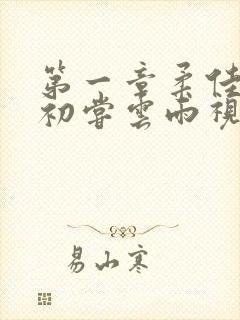 第一章柔佳
初尝雲雨視
易山寒